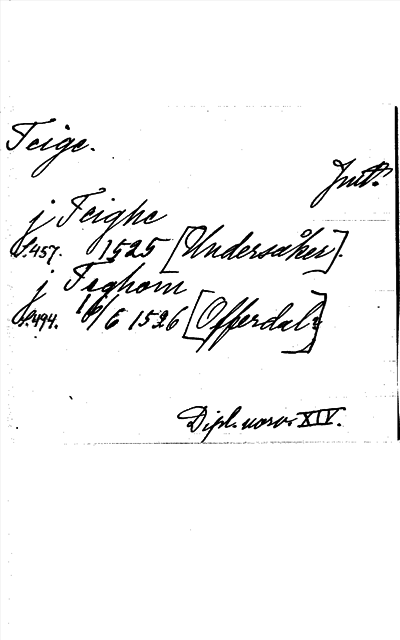 Teige.
Jmt.
j Teighe
s.457. 1525 [Undersåker].
j Teghom
s.494. 16/6 1526 [Offerdal]
Dipl. norv. XIV.